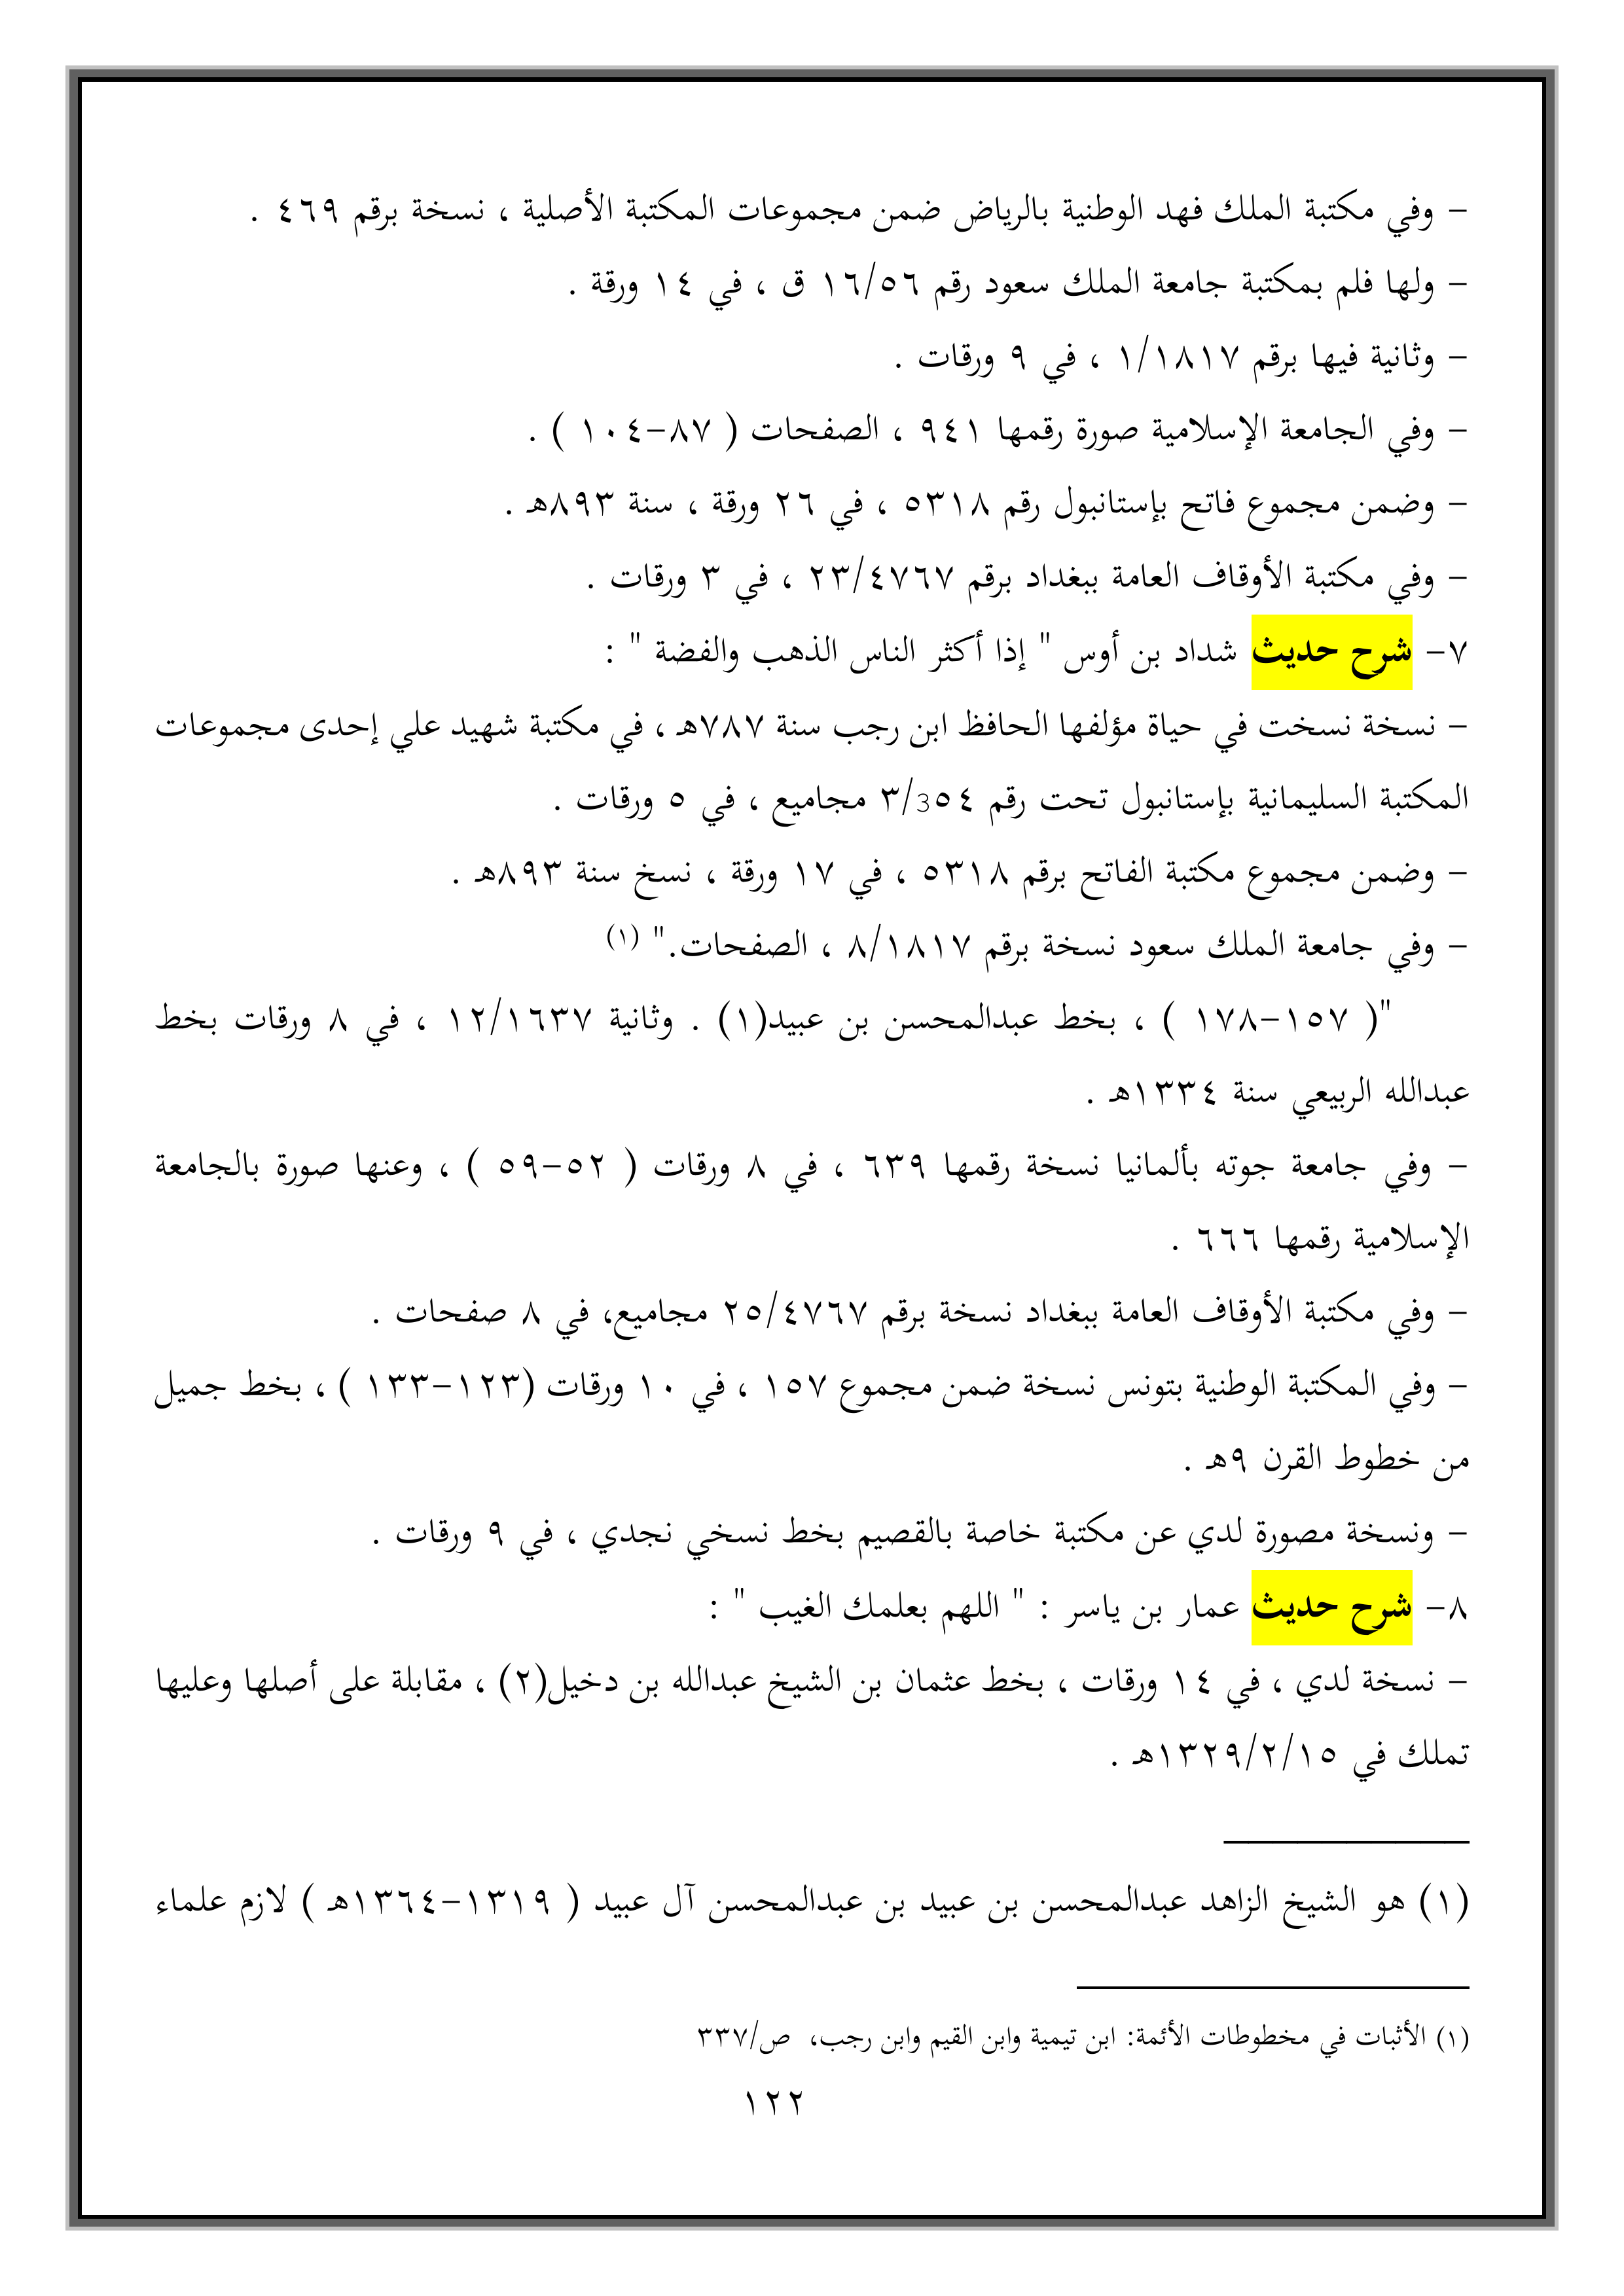 - وفي مكتبة الملك فهد الوطنية بالرياض ضمن مجموعات المكتبة الأصلية ، نسخة برقم ٤٦٩ .
- ولها فلم بمكتبة جامعة الملك سعود رقم ١٦/٥٦ ق ، في ١٤ ورقة .
- وثانية فيها برقم ١/١٨١٧ ، في ٩ ورقات .
- وفي الجامعة الإسلامية صورة رقمها ٩٤١ ، الصفحات ( ٨٧-١٠٤ ) .
- وضمن مجموع فاتح بإستانبول رقم ٥٣١٨ ، في ٢٦ ورقة ، سنة ٨٩٣هـ .
- وفي مكتبة الأوقاف العامة ببغداد برقم ٢٣/٤٧٦٧ ، في ٣ ورقات .
٧- شرح حديث شداد بن أوس " إذا أكثر الناس الذهب والفضة " :
- نسخة نسخت في حياة مؤلفها الحافظ ابن رجب سنة ٧٨٧هـ ، في مكتبة شهيد علي إحدى مجموعات
المكتبة السليمانية بإستانبول تحت رقم ٣/3٥٤ مجاميع ، في ٥ ورقات .
- وضمن مجموع مكتبة الفاتح برقم ٥٣١٨ ، في ١٧ ورقة ، نسخ سنة ٨٩٣هـ .
- وفي جامعة الملك سعود نسخة برقم ٨/١٨١٧ ، الصفحات." (١)
"( ١٥٧-١٧٨ ) ، بخط عبدالمحسن بن عبيد(١) . وثانية ١٢/١٦٣٧ ، في ٨ ورقات بخط
عبدالله الربيعي سنة ١٣٣٤هـ .
- وفي جامعة جوته بألمانيا نسخة رقمها ٦٣٩ ، في ٨ ورقات ( ٥٢-٥٩ ) ، وعنها صورة بالجامعة
الإسلامية رقمها ٦٦٦ .
- وفي مكتبة الأوقاف العامة ببغداد نسخة برقم ٢٥/٤٧٦٧ مجاميع، في ٨ صفحات .
- وفي المكتبة الوطنية بتونس نسخة ضمن مجموع ١٥٧ ، في ١٠ ورقات (١٢٣-١٣٣ ) ، بخط جميل
من خطوط القرن ٩هـ .
- ونسخة مصورة لدي عن مكتبة خاصة بالقصيم بخط نسخي نجدي ، في ٩ ورقات .
٨- شرح حديث عمار بن ياسر : " اللهم بعلمك الغيب " :
- نسخة لدي ، في ١٤ ورقات ، بخط عثمان بن الشيخ عبدالله بن دخيل(٢) ، مقابلة على أصلها وعليها
تملك في ١٣٢٩/٢/١٥هـ .
(١) هو الشيخ الزاهد عبدالمحسن بن عبيد بن عبدالمحسن آل عبيد ( ١٣١٩-١٣٦٤هـ ) لازم علماء
(١) الأثبات في مخطوطات الأئمة: ابن تيمية وابن القيم وابن رجب، ص/٣٣٧
١٢٢